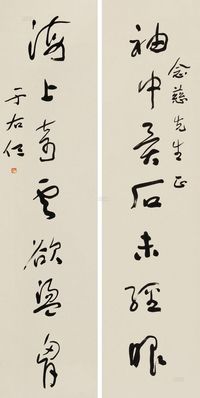 念慈先生正
袖中異石未經眼
海上奇雲欲盪胸
于右任